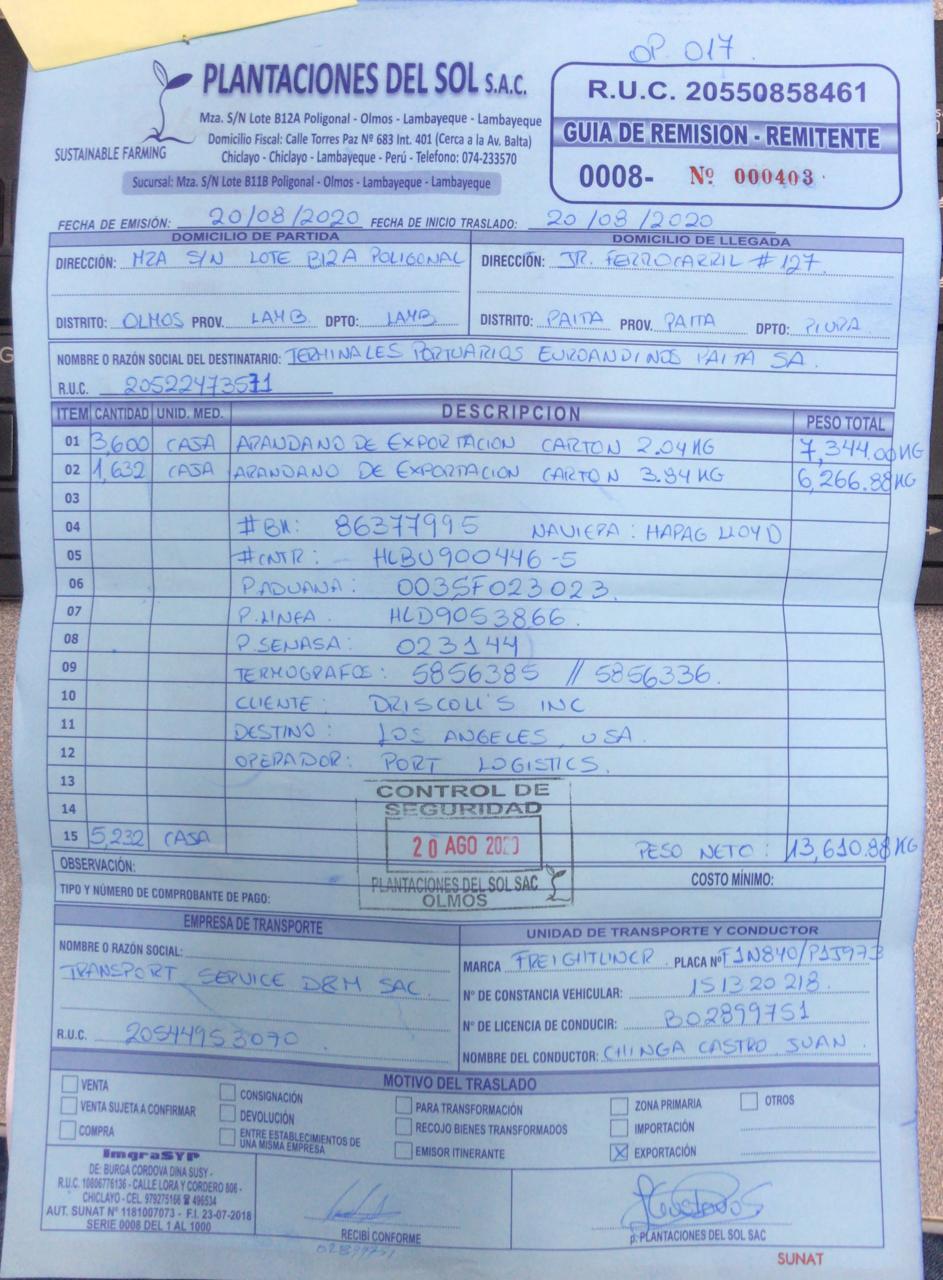 OP. 017
PLANTACIONES DEL SOL S.A.C.
SUSTAINABLE FARMING
Mza. S/N Lote B12A Poligonal - Olmos - Lambayeque - Lambayeque
Domicilio Fiscal: Calle Torres Paz Nº 683 Int. 401 (Cerca a la Av. Balta)
Chiclayo - Chiclayo - Lambayeque - Perú - Telefono: 074-233570
Sucursal: Mza. S/N Lote B11B Poligonal - Olmos - Lambayeque - Lambayeque
R.U.C. 20550858461
GUIA DE REMISION - REMITENTE
0008- Nº 000403
FECHA DE EMISIÓN: 20/08/2020 FECHA DE INICIO TRASLADO: 20/08/2020
DOMICILIO DE PARTIDA
DIRECCIÓN: MZA S/N LOTE B12A POLIGONAL
DISTRITO: OLMOS PROV. LAMB. DPTO: LAMB.
DOMICILIO DE LLEGADA
DIRECCIÓN: JR. FERROCARRIL # 127
DISTRITO: PAITA PROV. PAITA DPTO: PIURA
NOMBRE O RAZÓN SOCIAL DEL DESTINATARIO: TERMINALES PORTUARIOS EUROANDINOS PAITA SA.
R.U.C. 20522473571
ITEM CANTIDAD UNID. MED. DESCRIPCION PESO TOTAL
01 3,600 CAJA ARANDANO DE EXPORTACION CARTON 2.04 KG 7,344.00 KG
02 1,632 CAJA ARANDANO DE EXPORTACION CARTON 3.84 KG 6,266.88 KG
03
04 #BK: 86377995 NAVIERA: HAPAG LLOYD
05 #CNTR: HLBU900446-5
06 P.ADUANA: 0035F023023.
07 P.LINEA: HLD9053866.
08 P.SENASA: 023144
09 TERMOGRAFOS: 5856385 // 5856336.
10 CLIENTE: DRISCOLL'S INC
11 DESTINO: LOS ANGELES, USA.
12 OPERADOR: PORT LOGISTICS.
13
14
15 5,232 CAJA PESO NETO: 13,610.88 KG
CONTROL DE
SEGURIDAD
20 AGO 2020
PLANTACIONES DEL SOL SAC
OLMOS
OBSERVACIÓN:
COSTO MÍNIMO:
TIPO Y NÚMERO DE COMPROBANTE DE PAGO:
EMPRESA DE TRANSPORTE
NOMBRE O RAZÓN SOCIAL:
TRANSPORT SERVICE D&M SAC.
R.U.C. 20544953070
UNIDAD DE TRANSPORTE Y CONDUCTOR
MARCA FREIGHTLINER PLACA Nº F1N840/P1J973
Nº DE CONSTANCIA VEHICULAR: 151320218.
Nº DE LICENCIA DE CONDUCIR: B02899751
NOMBRE DEL CONDUCTOR: CHINGA CASTRO JUAN
MOTIVO DEL TRASLADO
VENTA
VENTA SUJETA A CONFIRMAR
COMPRA
CONSIGNACIÓN
DEVOLUCIÓN
ENTRE ESTABLECIMIENTOS DE
UNA MISMA EMPRESA
PARA TRANSFORMACIÓN
RECOJO BIENES TRANSFORMADOS
EMISOR ITINERANTE
ZONA PRIMARIA
IMPORTACIÓN
X EXPORTACIÓN
OTROS
ImgraSYP
DE: BURGA CORDOVA DINA SUSY -
R.U.C. 10806776136 - CALLE LORA Y CORDERO 806 -
CHICLAYO - CEL. 979275166 ☎ 496534
AUT. SUNAT Nº 1181007073 - F.I. 23-07-2018
SERIE 0008 DEL 1 AL 1000
RECIBÍ CONFORME
02899751
p. PLANTACIONES DEL SOL SAC
SUNAT